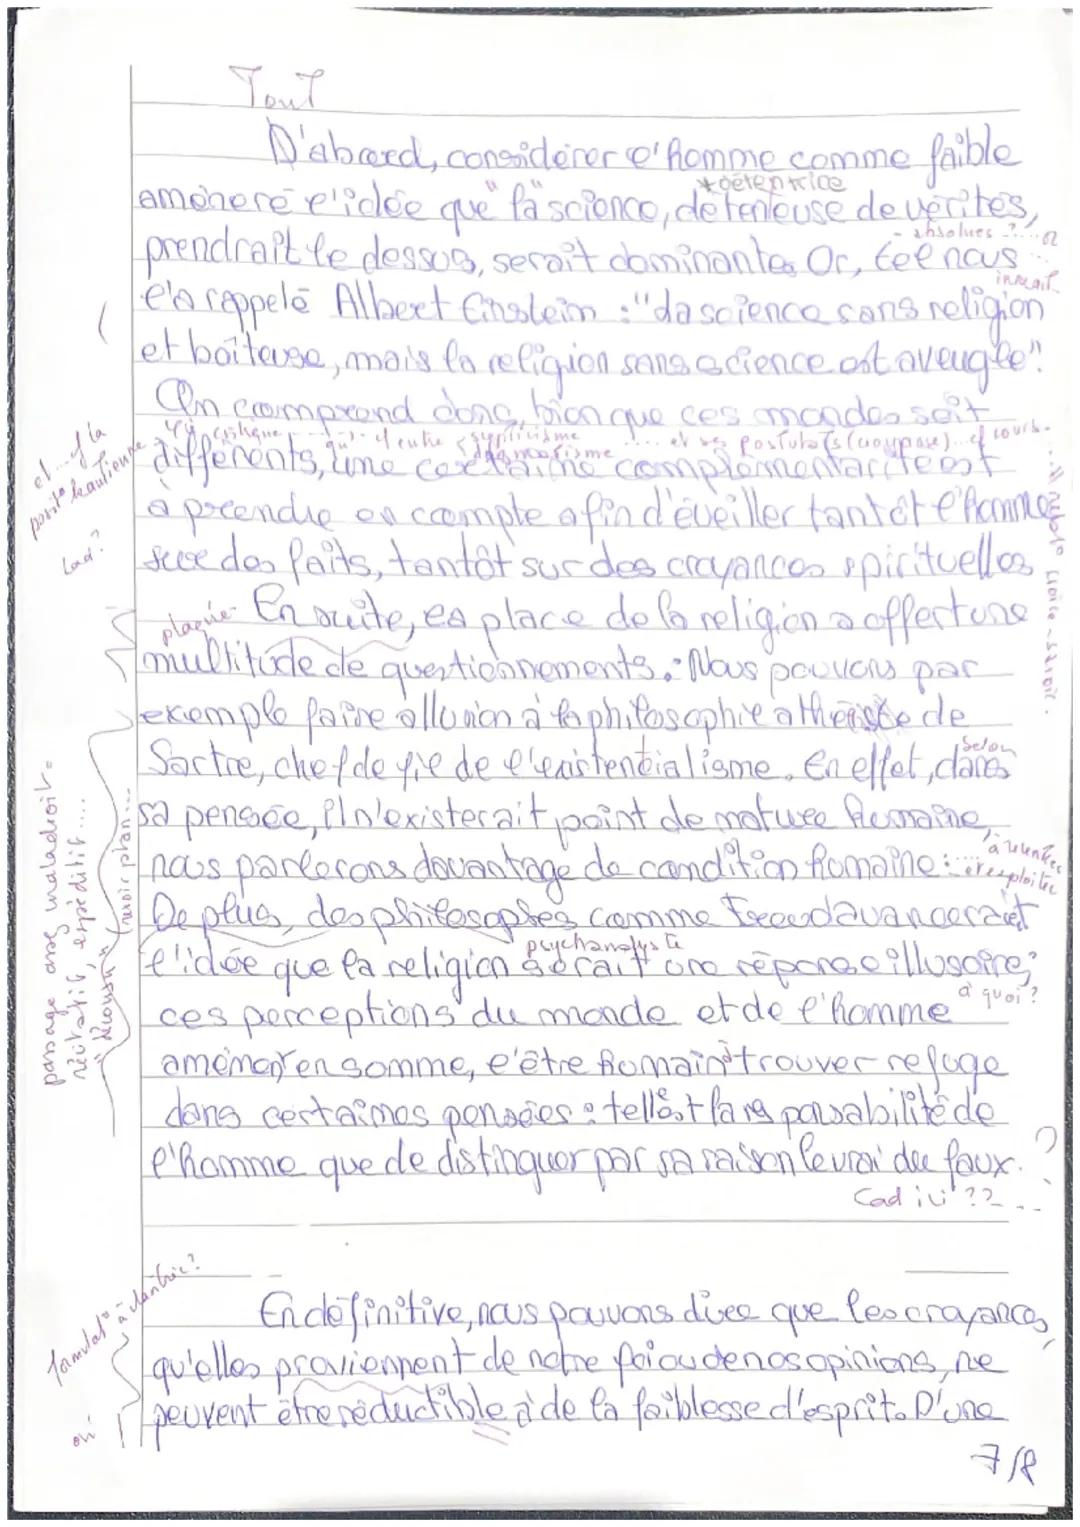 Tout
D'abord, considérer l'homme comme faible
* détentrice
amènere l'idée que "la" science, détenteuse de vérites,
- absolues - ?...
prendrait le dessus, serait dominante. Or, tel nous
l'a rappelé Albert Einstein : "La science sans religion
et boiteuse, mais la religion sans science est aveugle".
On comprend donc, bien que ces mondes soit
différents, une certaine complémentarité est
à prendre en compte afin d'éveiller tantôt l'homme
sur des faits, tantôt sur des croyances spirituelles
et ... la
posit° kantienne
Cad ?
plaqué
Ensuite, la place de la religion a offert une
multitude de questionnements. Nous pouvons par
exemple faire allusion à la philosophie athéiste de
Selon
Sartre, chef de file de l'existentialisme. En effet, dans
sa pensée, il n'existerait point de nature humaine,
nous parlerons davantage de condition humaine :
De plus, des philosophes comme Freud avancerait
psychanalyste
l'idée que la religion serait une réponse illusoire,
à quoi ?
ces perceptions du monde et de l'homme
amènent en somme, l'être humain à trouver refuge
dans certaines pensées : telle est la responsabilité de
l'homme que de distinguer par sa raison le vrai du faux.
Cad ici ??
passage assez maladroit
récitatif, expéditif ...
formulat° à clarifier ?
En définitive, nous pouvons dire que les croyances,
qu'elles proviennent de notre foi ou de nos opinions, ne
peuvent être réductible à de la faiblesse d'esprit. D'une
7/8